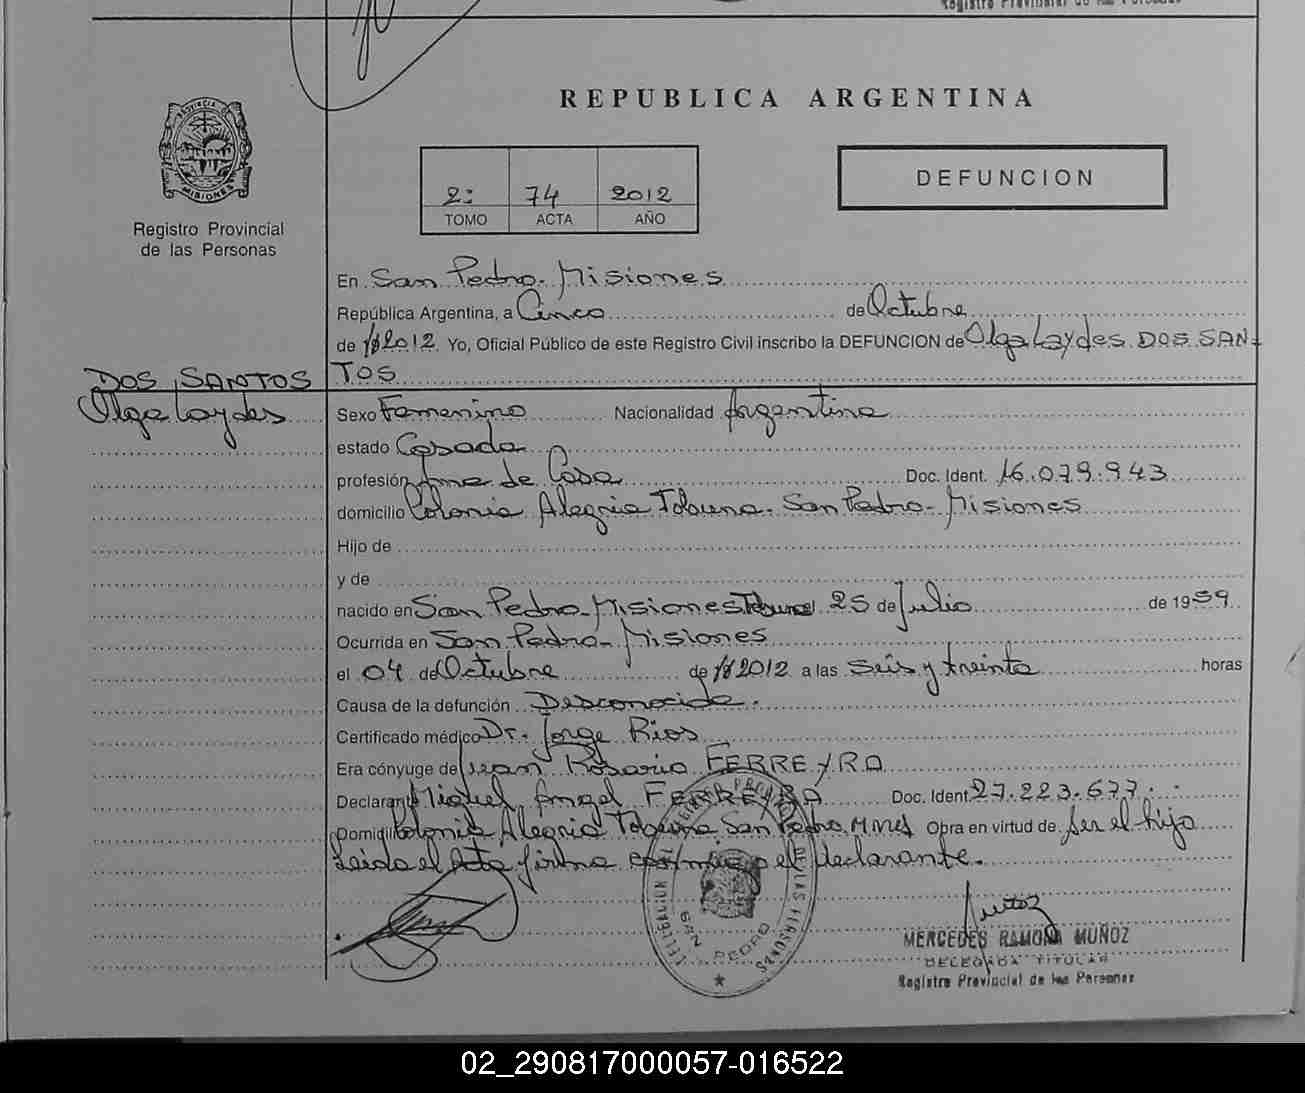 Registro Provincial de las Personas
REPUBLICA ARGENTINA
PROVINCIA DE
MISIONES
Registro Provincial
de las Personas
2: 74 2012
TOMO ACTA AÑO
DEFUNCION
En San Pedro - Misiones
República Argentina, a Cinco de Octubre
de 2012 Yo, Oficial Público de este Registro Civil inscribo la DEFUNCION de Olga Laydes DOS SAN-
DOS SANTOS TOS
Olga Laydes Sexo Femenino Nacionalidad Argentina
estado Casada
profesión Ama de Casa Doc. Ident. 16.079.943
domicilio Colonia Alegria Tobuna - San Pedro - Misiones
Hijo de
y de
nacido en San Pedro - Misiones Tobuna 25 de Julio de 1959
Ocurrida en San Pedro - Misiones
el 04 de Octubre de 2012 a las Seis y treinta horas
Causa de la defunción Desconocida.
Certificado médico Dr. Jorge Rios
Era cónyuge de Juan Rosario FERREYRA
Declarante Miguel Angel FERREYRA Doc. Ident. 27.223.677
Domicilio Colonia Alegria Tobuna San Pedro Mnes Obra en virtud de ser el hijo
Leida el Acta firma conmigo el declarante.
DE LAS PERSONAS
SAN PEDRO
MERCEDES RAMONA MUÑOZ
DELEGADA TITULAR
Registro Provincial de las Personas
02_290817000057-016522